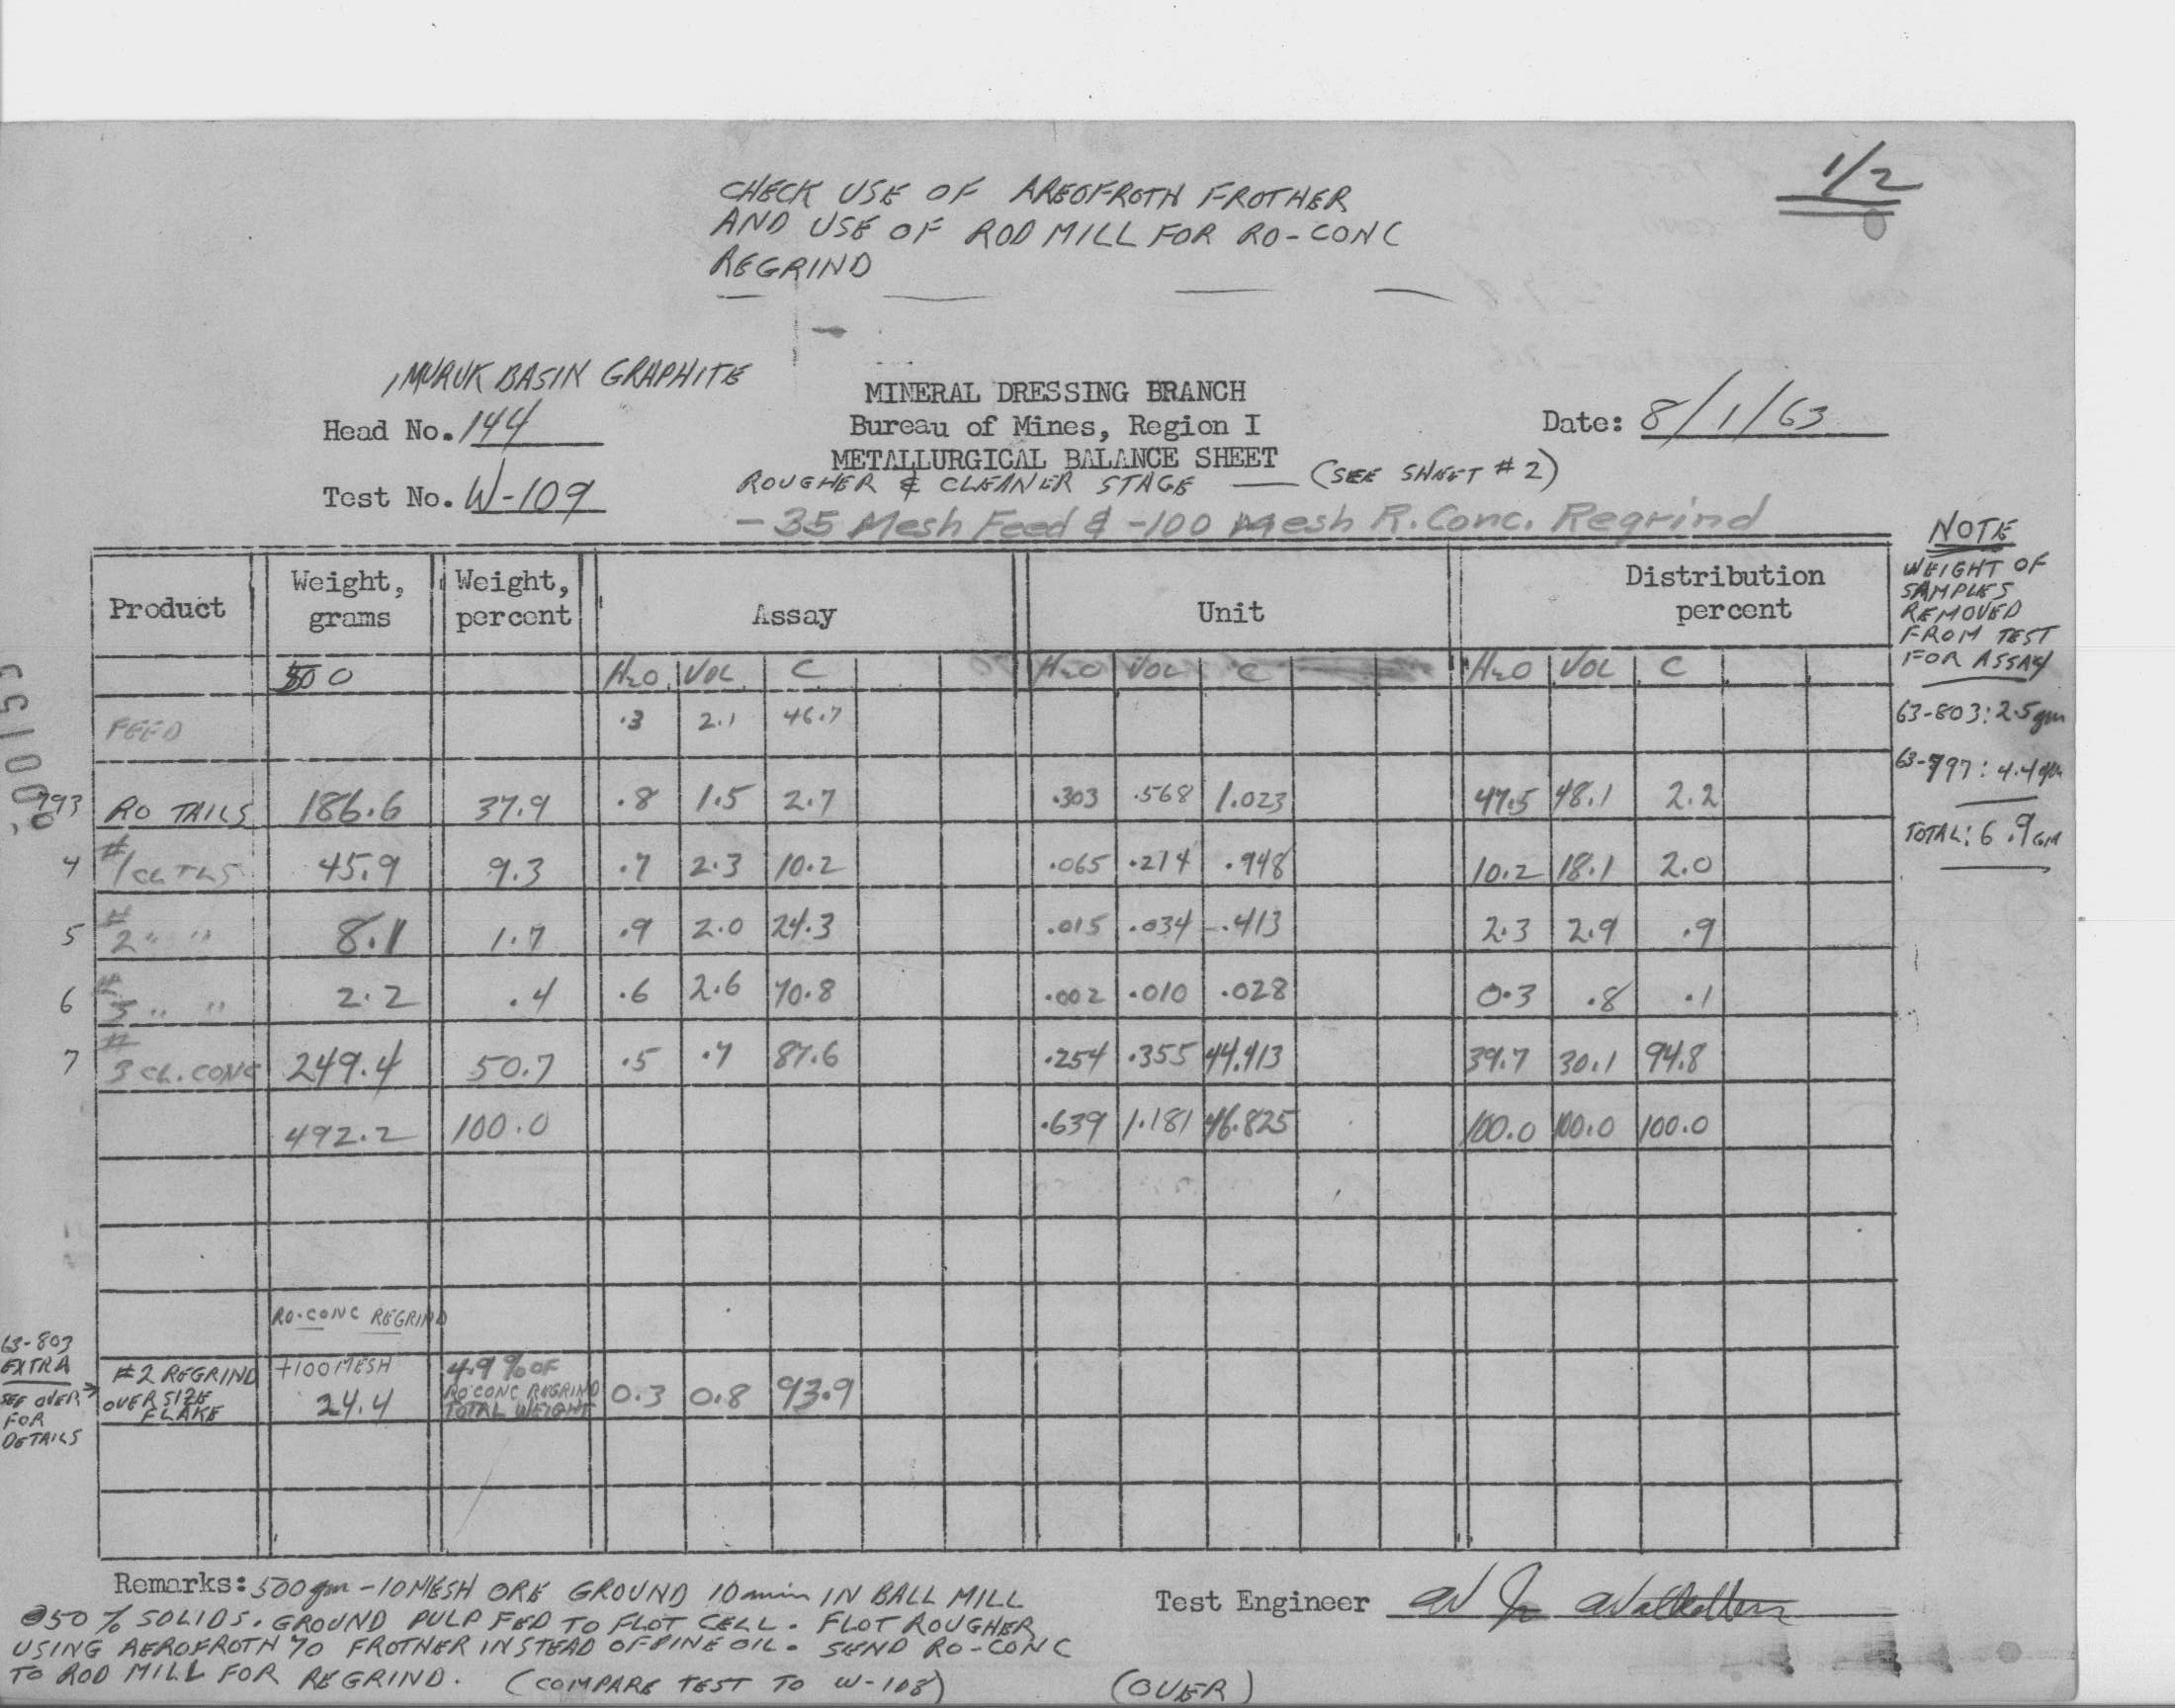 1/2
CHECK USE OF AREOFROTH FROTHER
AND USE OF ROD MILL FOR RO-CONC
REGRIND
IMURUK BASIN GRAPHITE
MINERAL DRESSING BRANCH
Head No. 144
Bureau of Mines, Region I
Date: 8/1/63
METALLURGICAL BALANCE SHEET
Test No. W-109
ROUGHER & CLEANER STAGE — (SEE SHEET #2)
-35 Mesh Feed & -100 Mesh R. Conc. Regrind
Product Weight, grams Weight, percent Assay Unit Distribution percent
500 H2O VOL C H2O VOL C H2O VOL C
FEED .3 2.1 46.7
793 RO TAILS 186.6 37.9 .8 1.5 2.7 .303 .568 1.023 47.5 48.1 2.2
4 #1 CL TLS 45.9 9.3 .7 2.3 10.2 .065 .214 .948 10.2 18.1 2.0
5 #2 " " 8.1 1.7 .9 2.0 24.3 .015 .034 .413 2.3 2.9 .9
6 #3 " " 2.2 .4 .6 2.6 70.8 .002 .010 .028 0.3 .8 .1
7 #3 CL. CONC 249.4 50.7 .5 .7 87.6 .254 .355 44.413 39.7 30.1 94.8
492.2 100.0 .639 1.181 46.825 100.0 100.0 100.0 100.0
RO-CONC REGRIND
63-803
EXTRA
SEE OVER
FOR
DETAILS
#2 REGRIND
OVERSIZE
FLAKE
+100 MESH
24.4
4.9% OF
RO CONC REGRIND
TOTAL WEIGHT
0.3 0.8 93.9
NOTE
WEIGHT OF
SAMPLES
REMOVED
FROM TEST
FOR ASSAY
63-803: 2.5 gm
63-797: 4.4 gm
TOTAL: 6.9 GM
Remarks: 500 gm -10 MESH ORE GROUND 10 min IN BALL MILL
@50% SOLIDS. GROUND PULP FED TO FLOT CELL. FLOT ROUGHER
USING AEROFROTH 70 FROTHER INSTEAD OF PINE OIL. SEND RO-CONC
TO ROD MILL FOR REGRIND. (COMPARE TEST TO W-108) (OVER)
Test Engineer